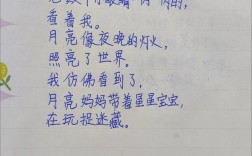 眼睛
看着我。
月亮像夜晚的灯火，
照亮了世界。
我仿佛看到了，
月亮妈妈带着星星宝宝，
在玩捉迷藏。